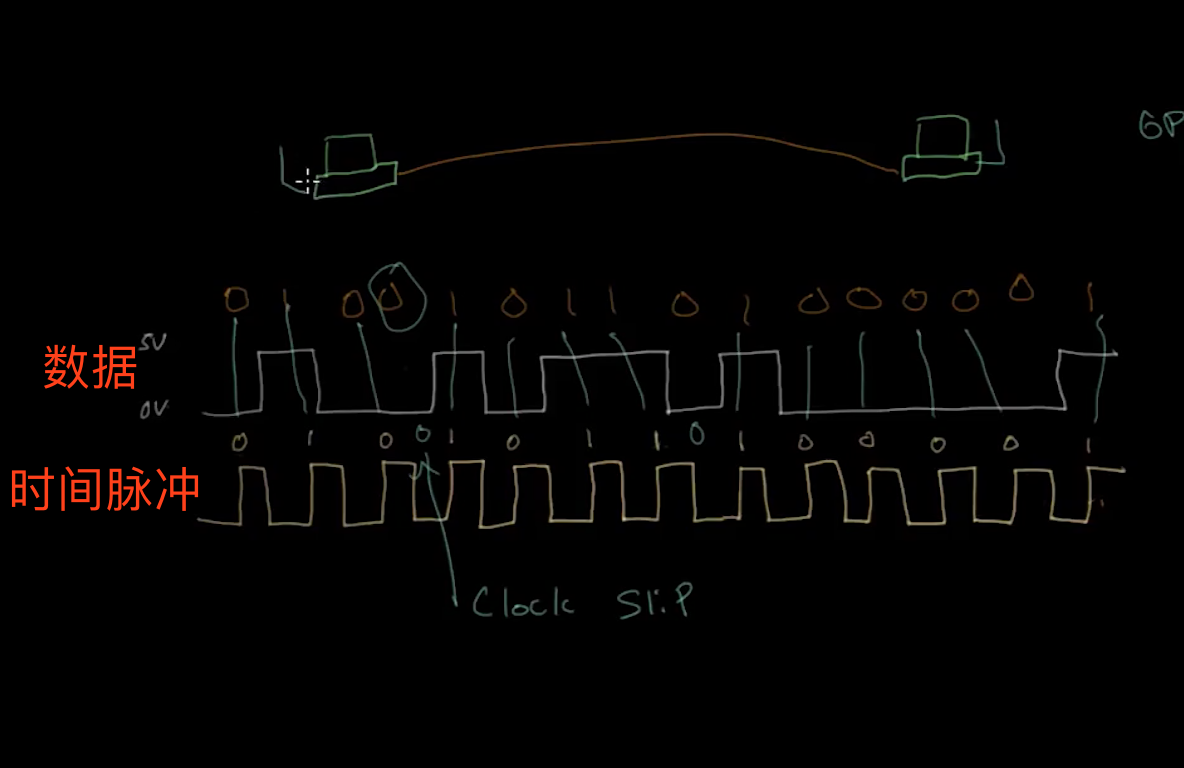 GP
0 1 0 0 1 0 1 1 0 1 0 0 0 0 0 1
5V
数据
0V
0 1 0 0 1 0 1 1 0 1 0 0 0 0 1
时间脉冲
Clock Slip